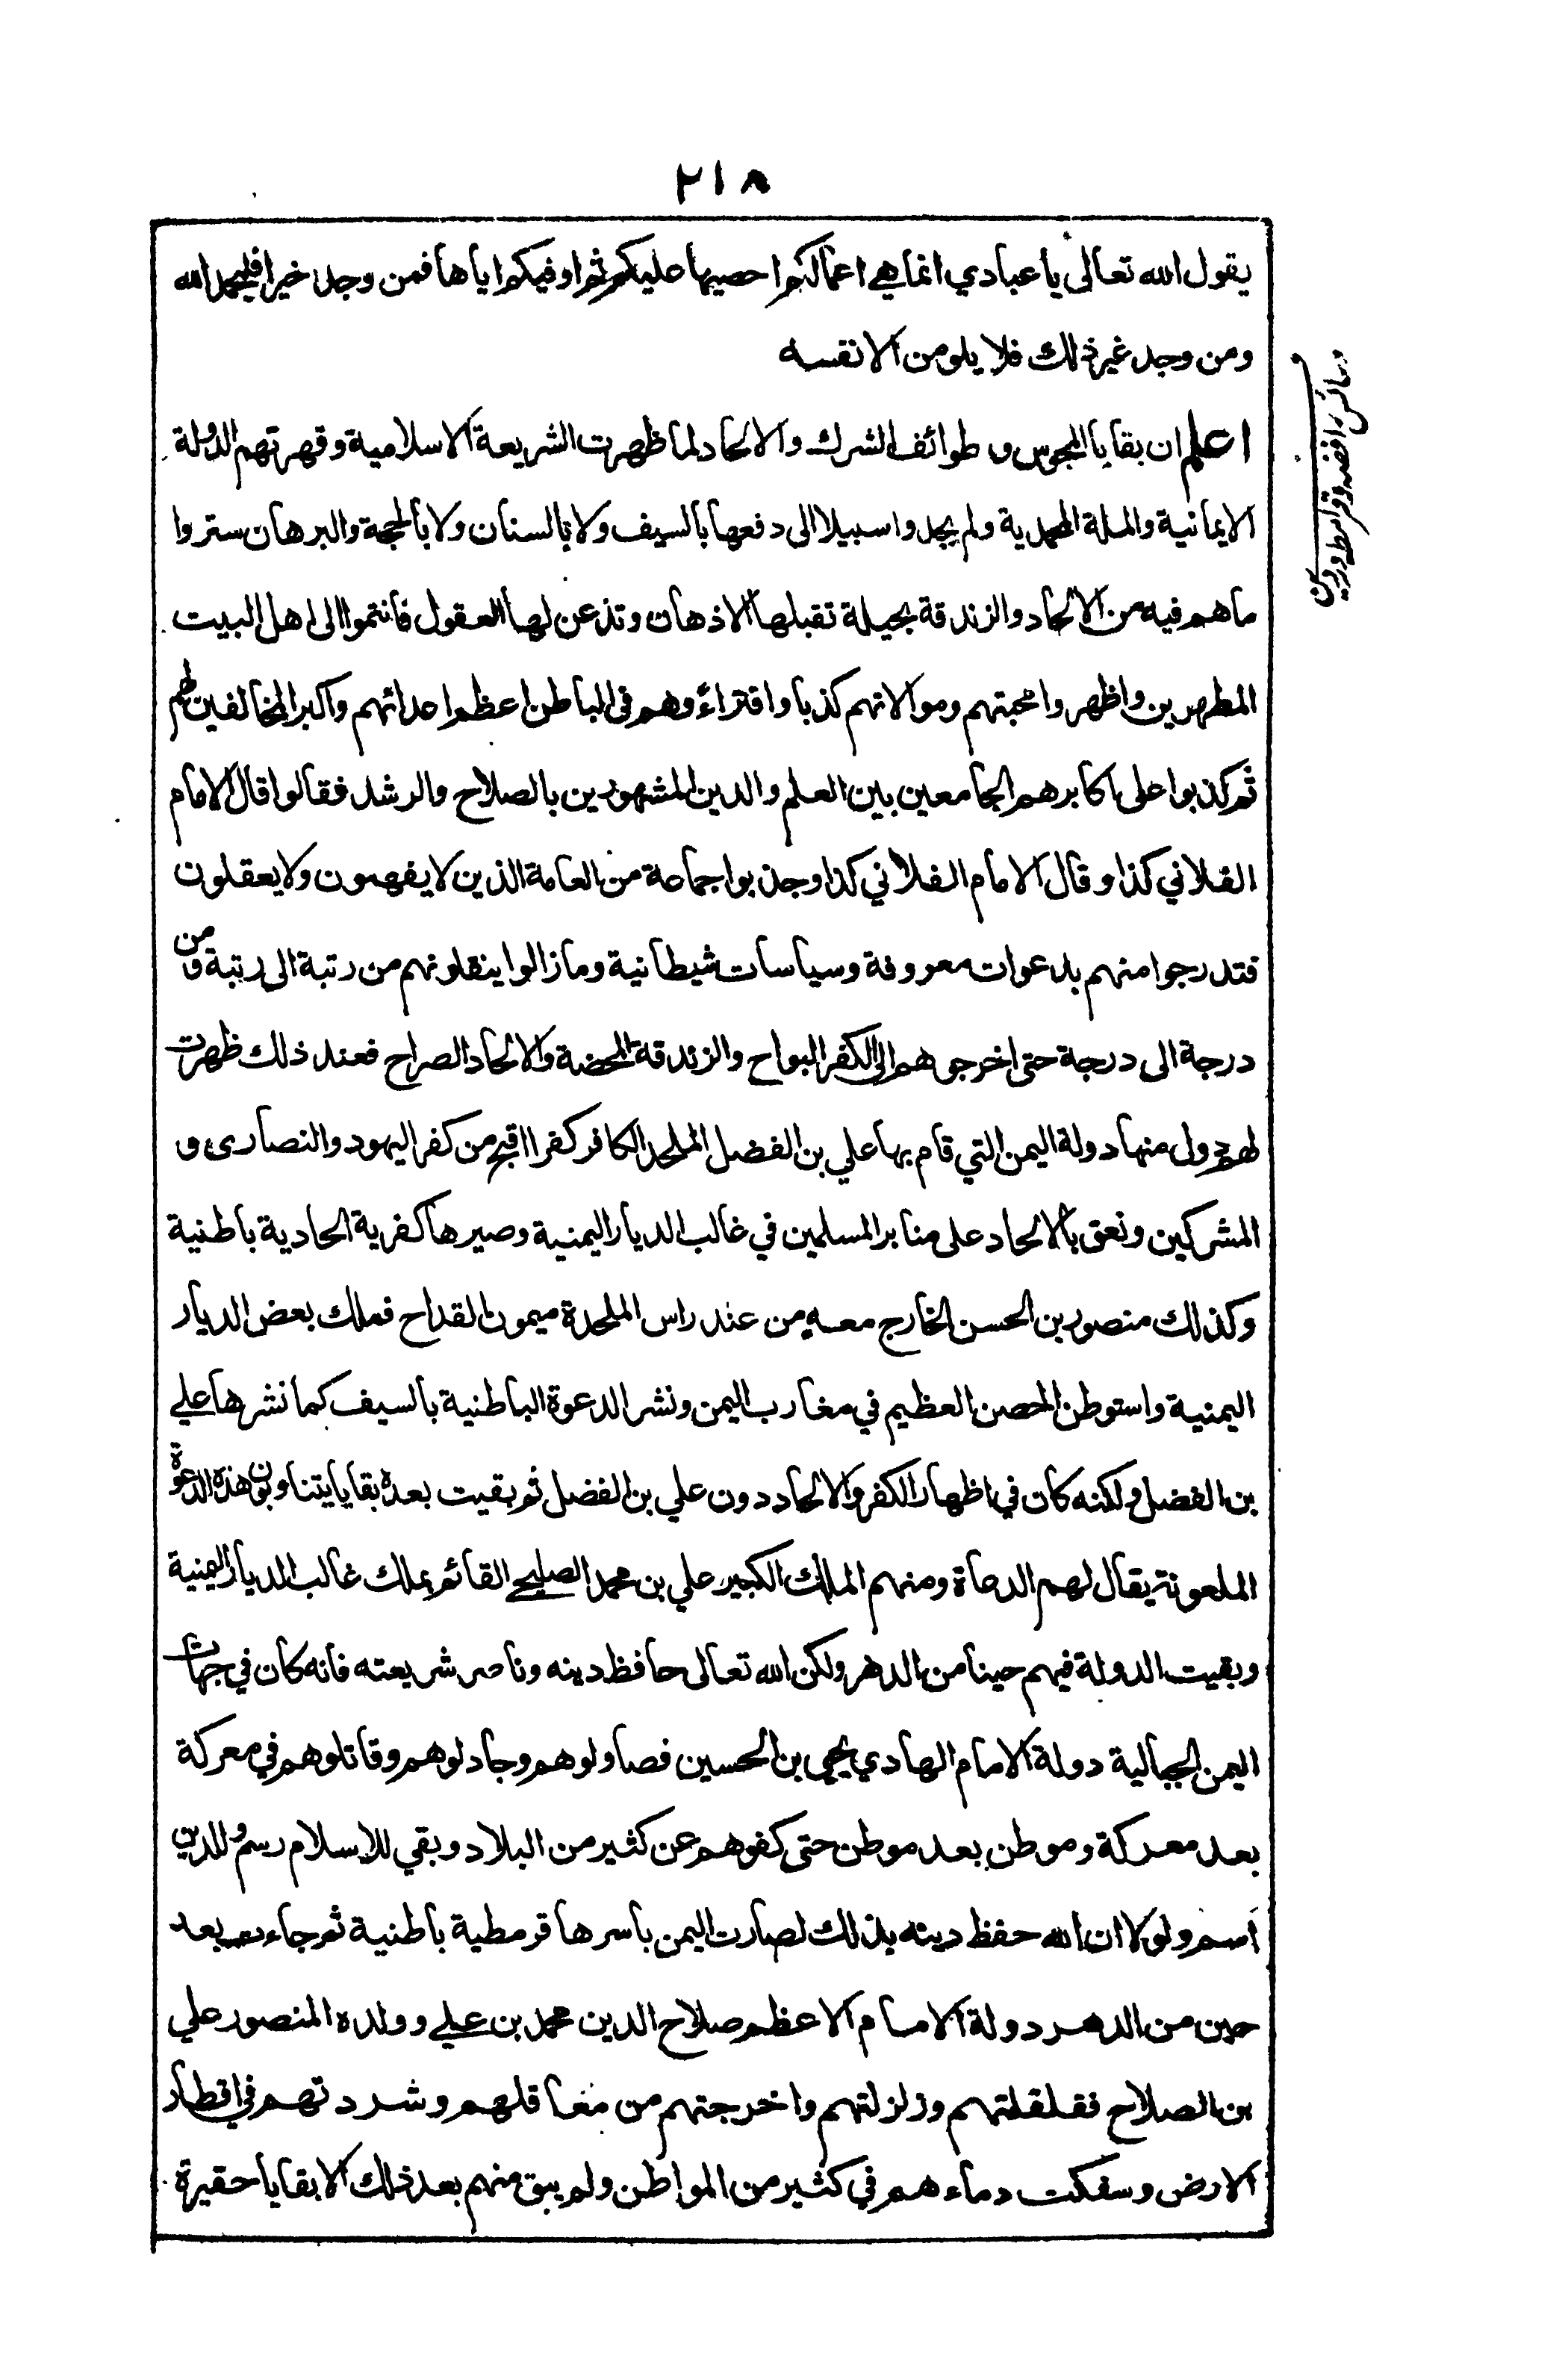 ٢١٨
يقول الله تعالى يا عبادي انما هي اعمالكم احصيها عليكم ثم اوفيكم اياها فمن وجد خيرا فليحمد الله
ومن وجد غير ذلك فلا يلومن الا نفسه
اعلم ان بقايا المجوس و طوائف الشرك والالحاد لما ظهرت الشريعة الاسلامية وقهرتهم الدولة
الايمانية والملة المحمدية ولم يجدوا سبيلا الى دفعها بالسيف ولا بالسنان ولا بالحجة والبرهان ستروا
ما هم فيه من الالحاد والزندقة بحيلة تقبلها الاذهان وتذعن لها العقول فانتموا الى اهل البيت
المطهرين واظهروا محبتهم وموالاتهم كذبا وافتراءً وهم فى الباطن اعظم اعدائهم واكبر المخالفين لهم
ثم كذبوا على اكابرهم الجامعين بين العلم والدين المشهورين بالصلاح والرشد فقالوا قال الامام
الفلاني كذا وقال الامام الفلاني كذا وجذبوا جماعة من العامة الذين لا يفهمون ولا يعقلون
فتدرجوا منهم بدعوات معروفة وسياسات شيطانية ومازالوا ينقلونهم من رتبة الى رتبة ومن
درجة الى درجة حتى اخرجوهم الى الكفر البواح والزندقة المحضة والالحاد الصراح فعند ذلك ظهرت
لهم دول منها دولة اليمن التي قام بها علي بن الفضل الملحد الكافر كفرا اقبح من كفر اليهود والنصارى و
المشركين ونعق بالالحاد على منابر المسلمين في غالب الديار اليمنية وصيرها كفرية الحادية باطنية
وكذلك منصور بن الحسن الخارج معه من عند راس الملحدة ميمون القداح فملك بعض الديار
اليمنية واستوطن الحصن العظيم في مغارب اليمن ونشر الدعوة الباطنية بالسيف كما نشرها علي
بن الفضل ولكنه كان في اظهار الكفر والالحاد دون علي بن الفضل ثم بقيت بعده بقايا يتناوبون هذه الدعوة
الملعونة يقال لهم الدعاة ومنهم الملك الكبير علي بن محمد الصليحي القائم بملك غالب الديار اليمنية
وبقيت الدولة فيهم حينا من الدهر ولكن الله تعالى حافظ دينه وناصر شريعته فانه كان في جهات
اليمن الجبالية دولة الامام الهادي يحيى بن الحسين فصاولوهم وجادلوهم وقاتلوهم في معركة
بعد معركة وموطن بعد موطن حتى كفوهم عن كثير من البلاد وبقي للاسلام رسم وللدين
اسم ولولا ان الله حفظ دينه بذلك لصارت اليمن باسرها قرمطية باطنية ثم جاءت بعد
حين من الدهر دولة الامام الاعظم صلاح الدين محمد بن علي وولده المنصور علي
بن الصلاح فقلقلتهم وزلزلتهم واخرجتهم من معاقلهم وشردتهم في اقطار
الارض وسفكت دماءهم في كثير من المواطن ولم يبق منهم بعد ذلك الا بقايا حقيرة